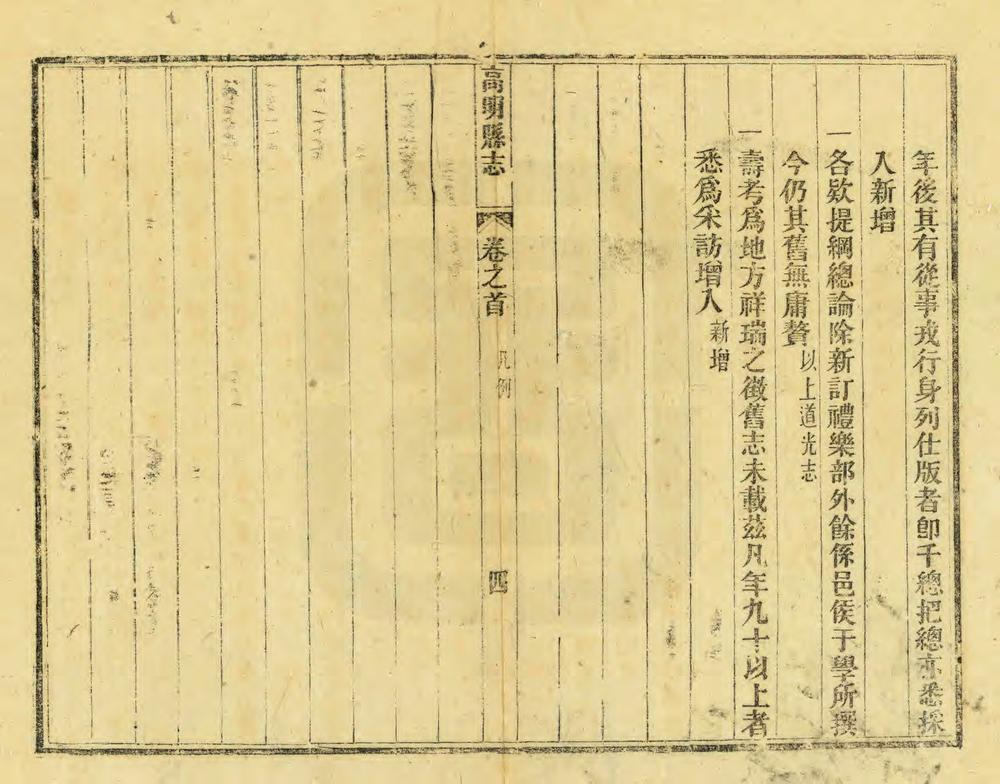 年後其有從事戎行身列仕版者卽千總把總亦悉採
入新增
一各欵提綱總論除新訂禮樂部外餘係邑侯于學所撰
今仍其舊無庸贅以上道光志
一壽考爲地方祥瑞之徵舊志未載茲凡年九十以上者
悉爲采訪增入新增
高明縣志
卷之首
凡例
四